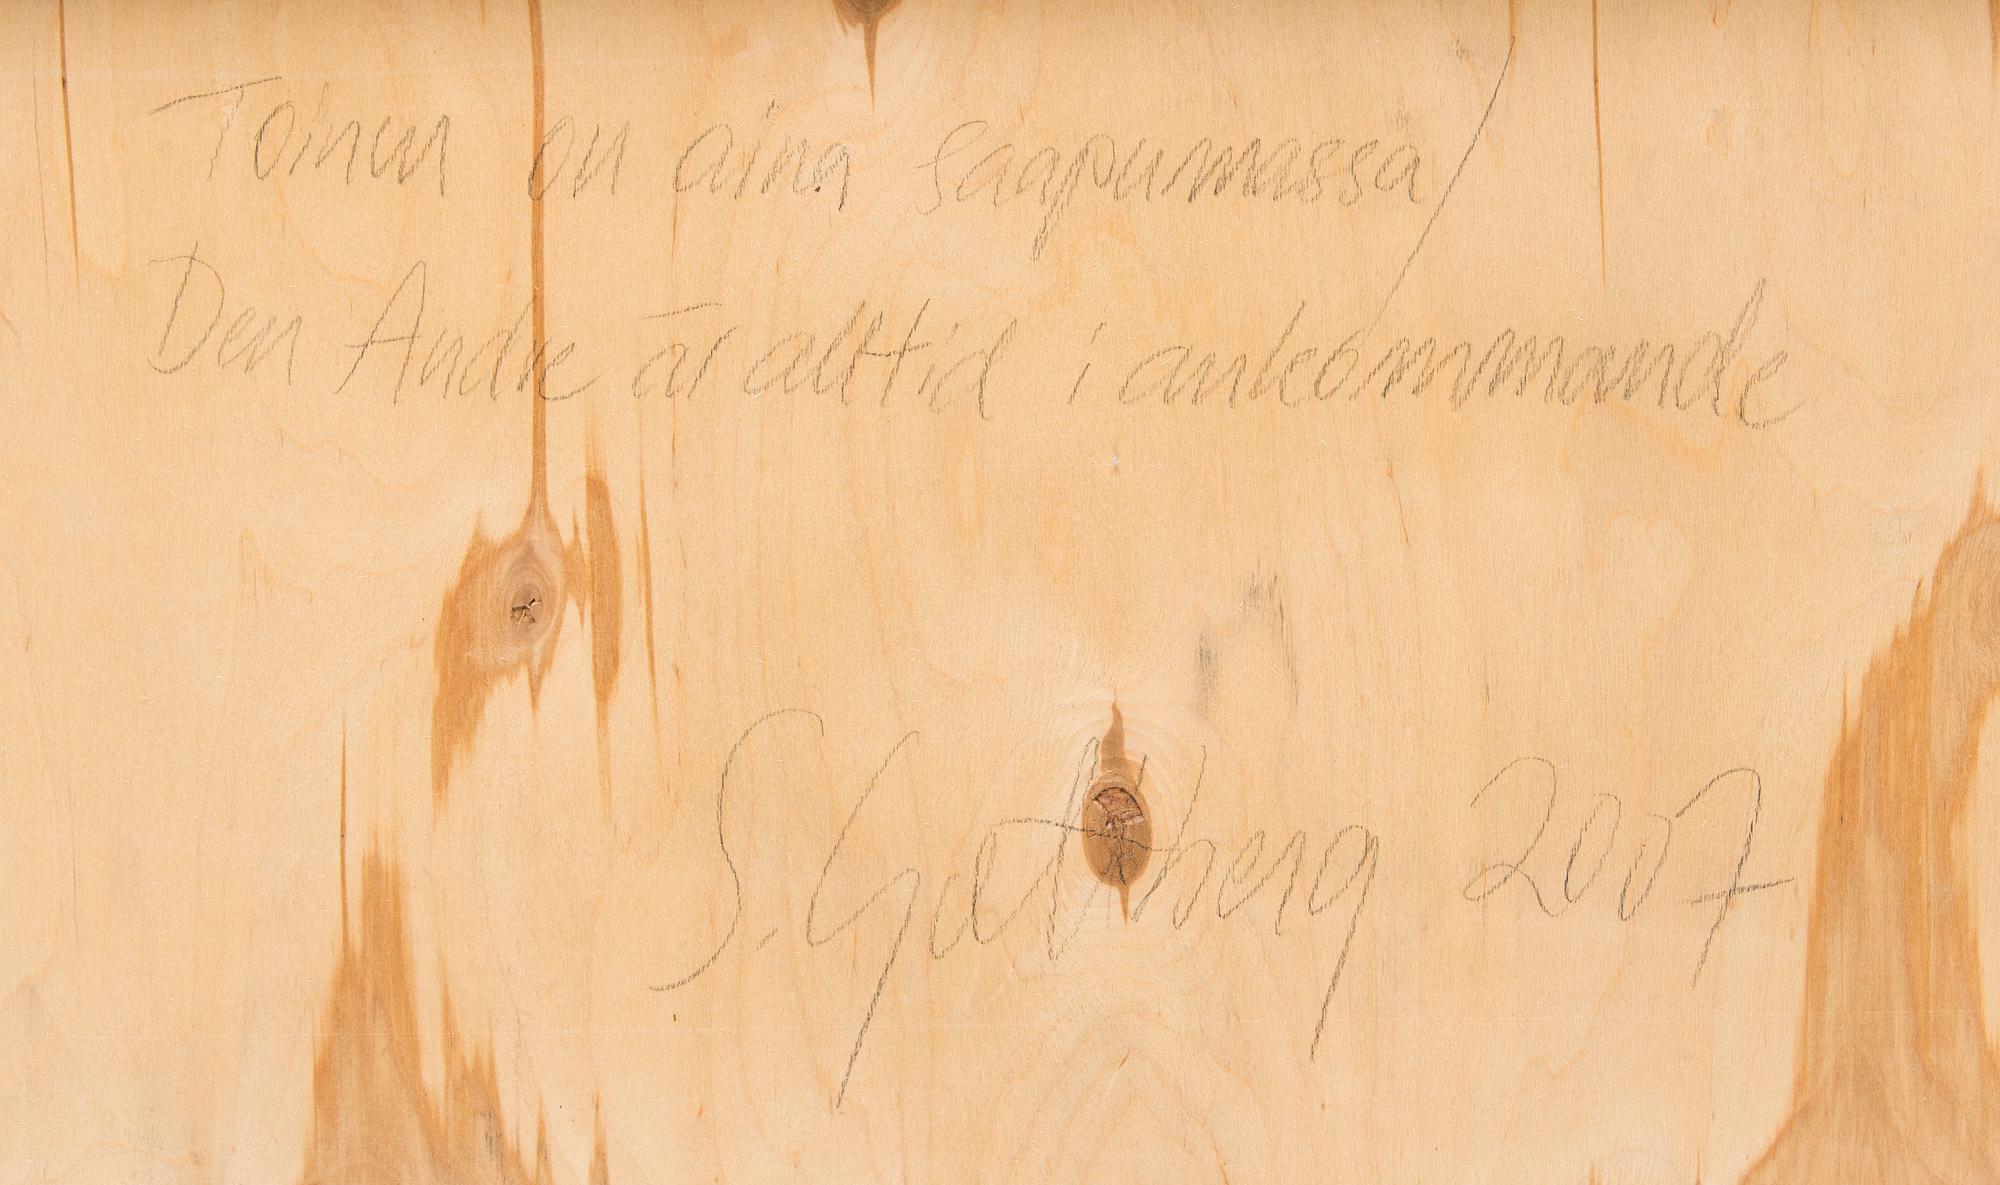 Toinen on aina saapumassa/
Den Andre är alltid i ankommande
S. Gottberg 2007